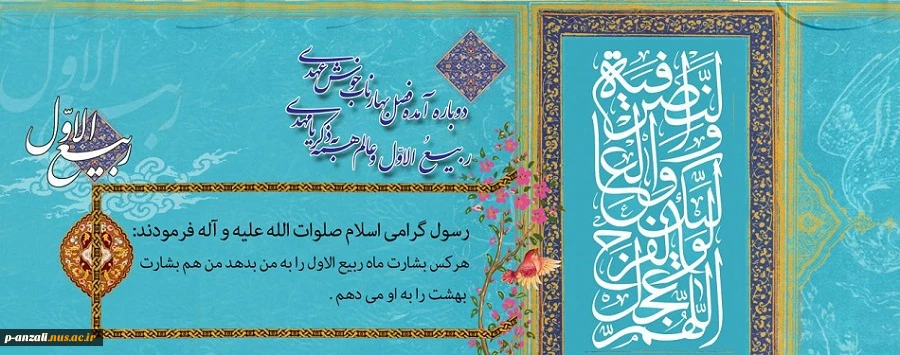 دوباره آمده فصل بهار ناب خوش عهدی
ربیعُ الاوّل و عالم همه به ذکر یا مهدی
ربیع الاوّل
رسول گرامی اسلام صلوات الله علیه و آله فرمودند:
هرکس بشارت ماه ربیع الاول را به من بدهد من هم بشارت
بهشت را به او می دهم .
اللّهمّ عجّل لولیّک الفرج والعافیة والنّصر
p-anzali.nus.ac.ir